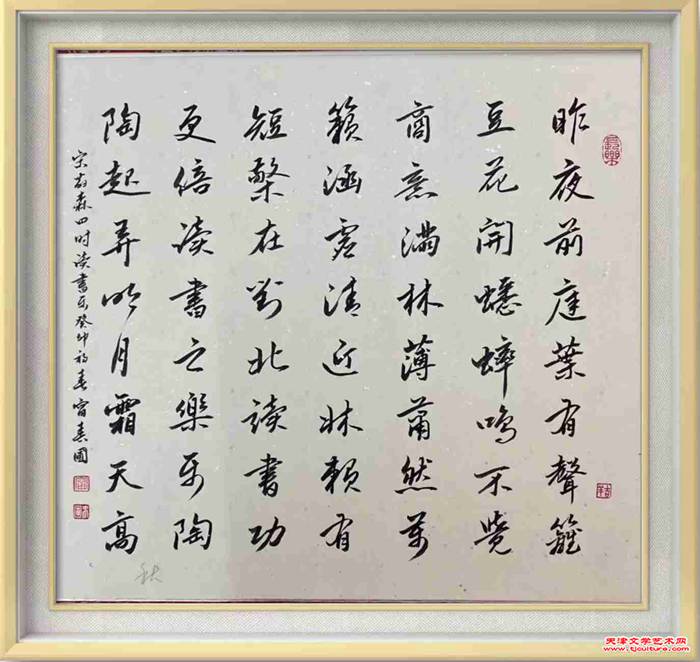 昨夜前庭葉有聲籬
豆花開蟋蟀鳴不覺
商意滿林薄蕭然萬
籟涵虛清近牀賴有
短檠在对此读書功
更倍读書之樂乐陶
陶起弄明月霜天高
宋翁森四时读書乐癸卯初春
秋
天津文学艺术网
www.tjculture.com